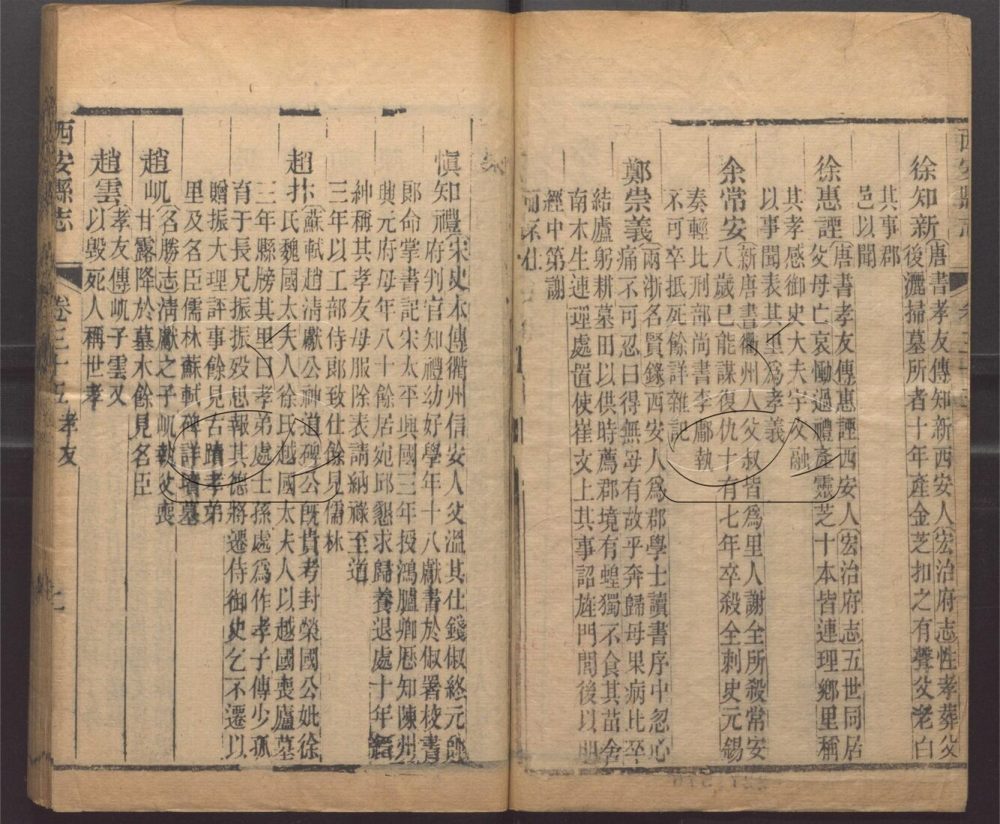 徐知新唐書孝友傳知新西安人宏治府志性孝葬父
後灑掃墓所者十年產金芝扣之有聲父老白
其事郡
邑以聞
徐惠諲唐書孝友傳惠諲西安人宏治府志五世同居
父母亡哀慟過禮產靈芝十本皆連理鄉里稱
其孝感御史大夫宇文融
以事聞表其里爲孝義
余常安新唐書衢州人父叔皆爲里人謝全所殺常安
八歲已能謀復仇十有七年卒殺全刺史元錫
奏輕比刑部尚書李鄘執
不可卒抵死餘詳雜記
鄭崇義兩浙名賢錄西安人爲郡學士讀書序中忽心
痛不可忍曰得無母有故乎奔歸母果病比卒
結廬躬耕墓田以供時薦郡境有蝗獨不食其苗舍
南木生連理處置使崔文上其事詔旌門閭後以明
經中第謝
而不仕
慎知禮宋史本傳衢州信安人父溫其仕錢俶終元帥
府判官知禮幼好學年十八獻書於俶署校書
郎命掌書記宋太平興國三年授鴻臚卿歷知陳州
興元府母年八十餘居宛邱懇求歸養退處十年縉
紳稱其孝友母服除表請納祿至道
三年以工部侍郎致仕餘見儒林
趙抃蘇軾趙清獻公神道碑公旣貴考封榮國公妣徐
氏魏國太夫人徐氏越國太夫人以越國喪廬墓
三年縣榜其里曰孝弟處士孫處爲作孝子傳少孤
育于長兄振振歿思報其德將遷侍御史乞不遷以
贈振大理評事餘見古蹟孝弟
里及名臣儒林蘇軾碑詳墳墓
趙㞦名勝志淸獻之子㞦執父喪
甘露降於墓木餘見名臣
趙雲孝友傳㞦子雲又
以毀死人稱世孝
西安縣志 卷三十五 孝友